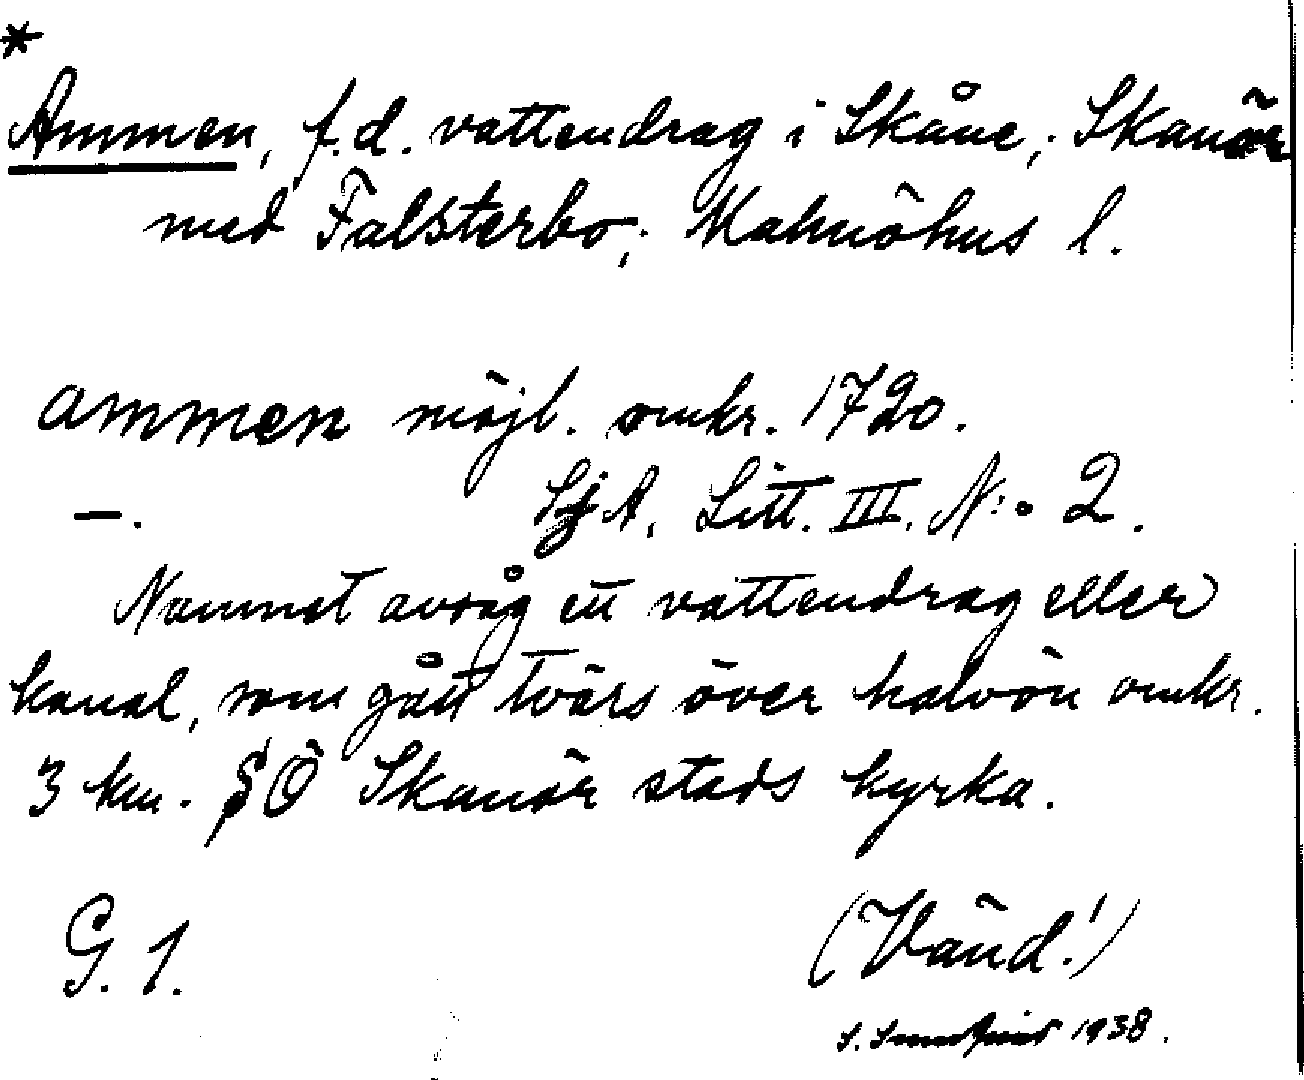 *
Ammen, f.d. vattendrag i Skåne; Skanör
med Falsterbo; Malmöhus l.
ammen möjl. omkr. 1720.
—. SjA, Litt. III. N:o 2.
Namnet avsåg ett vattendrag eller
kanal, som gått tvärs över halvön omkr.
3 km. SÖ Skanör stads kyrka.
G. 1. (Vänd!)
S. 1938.